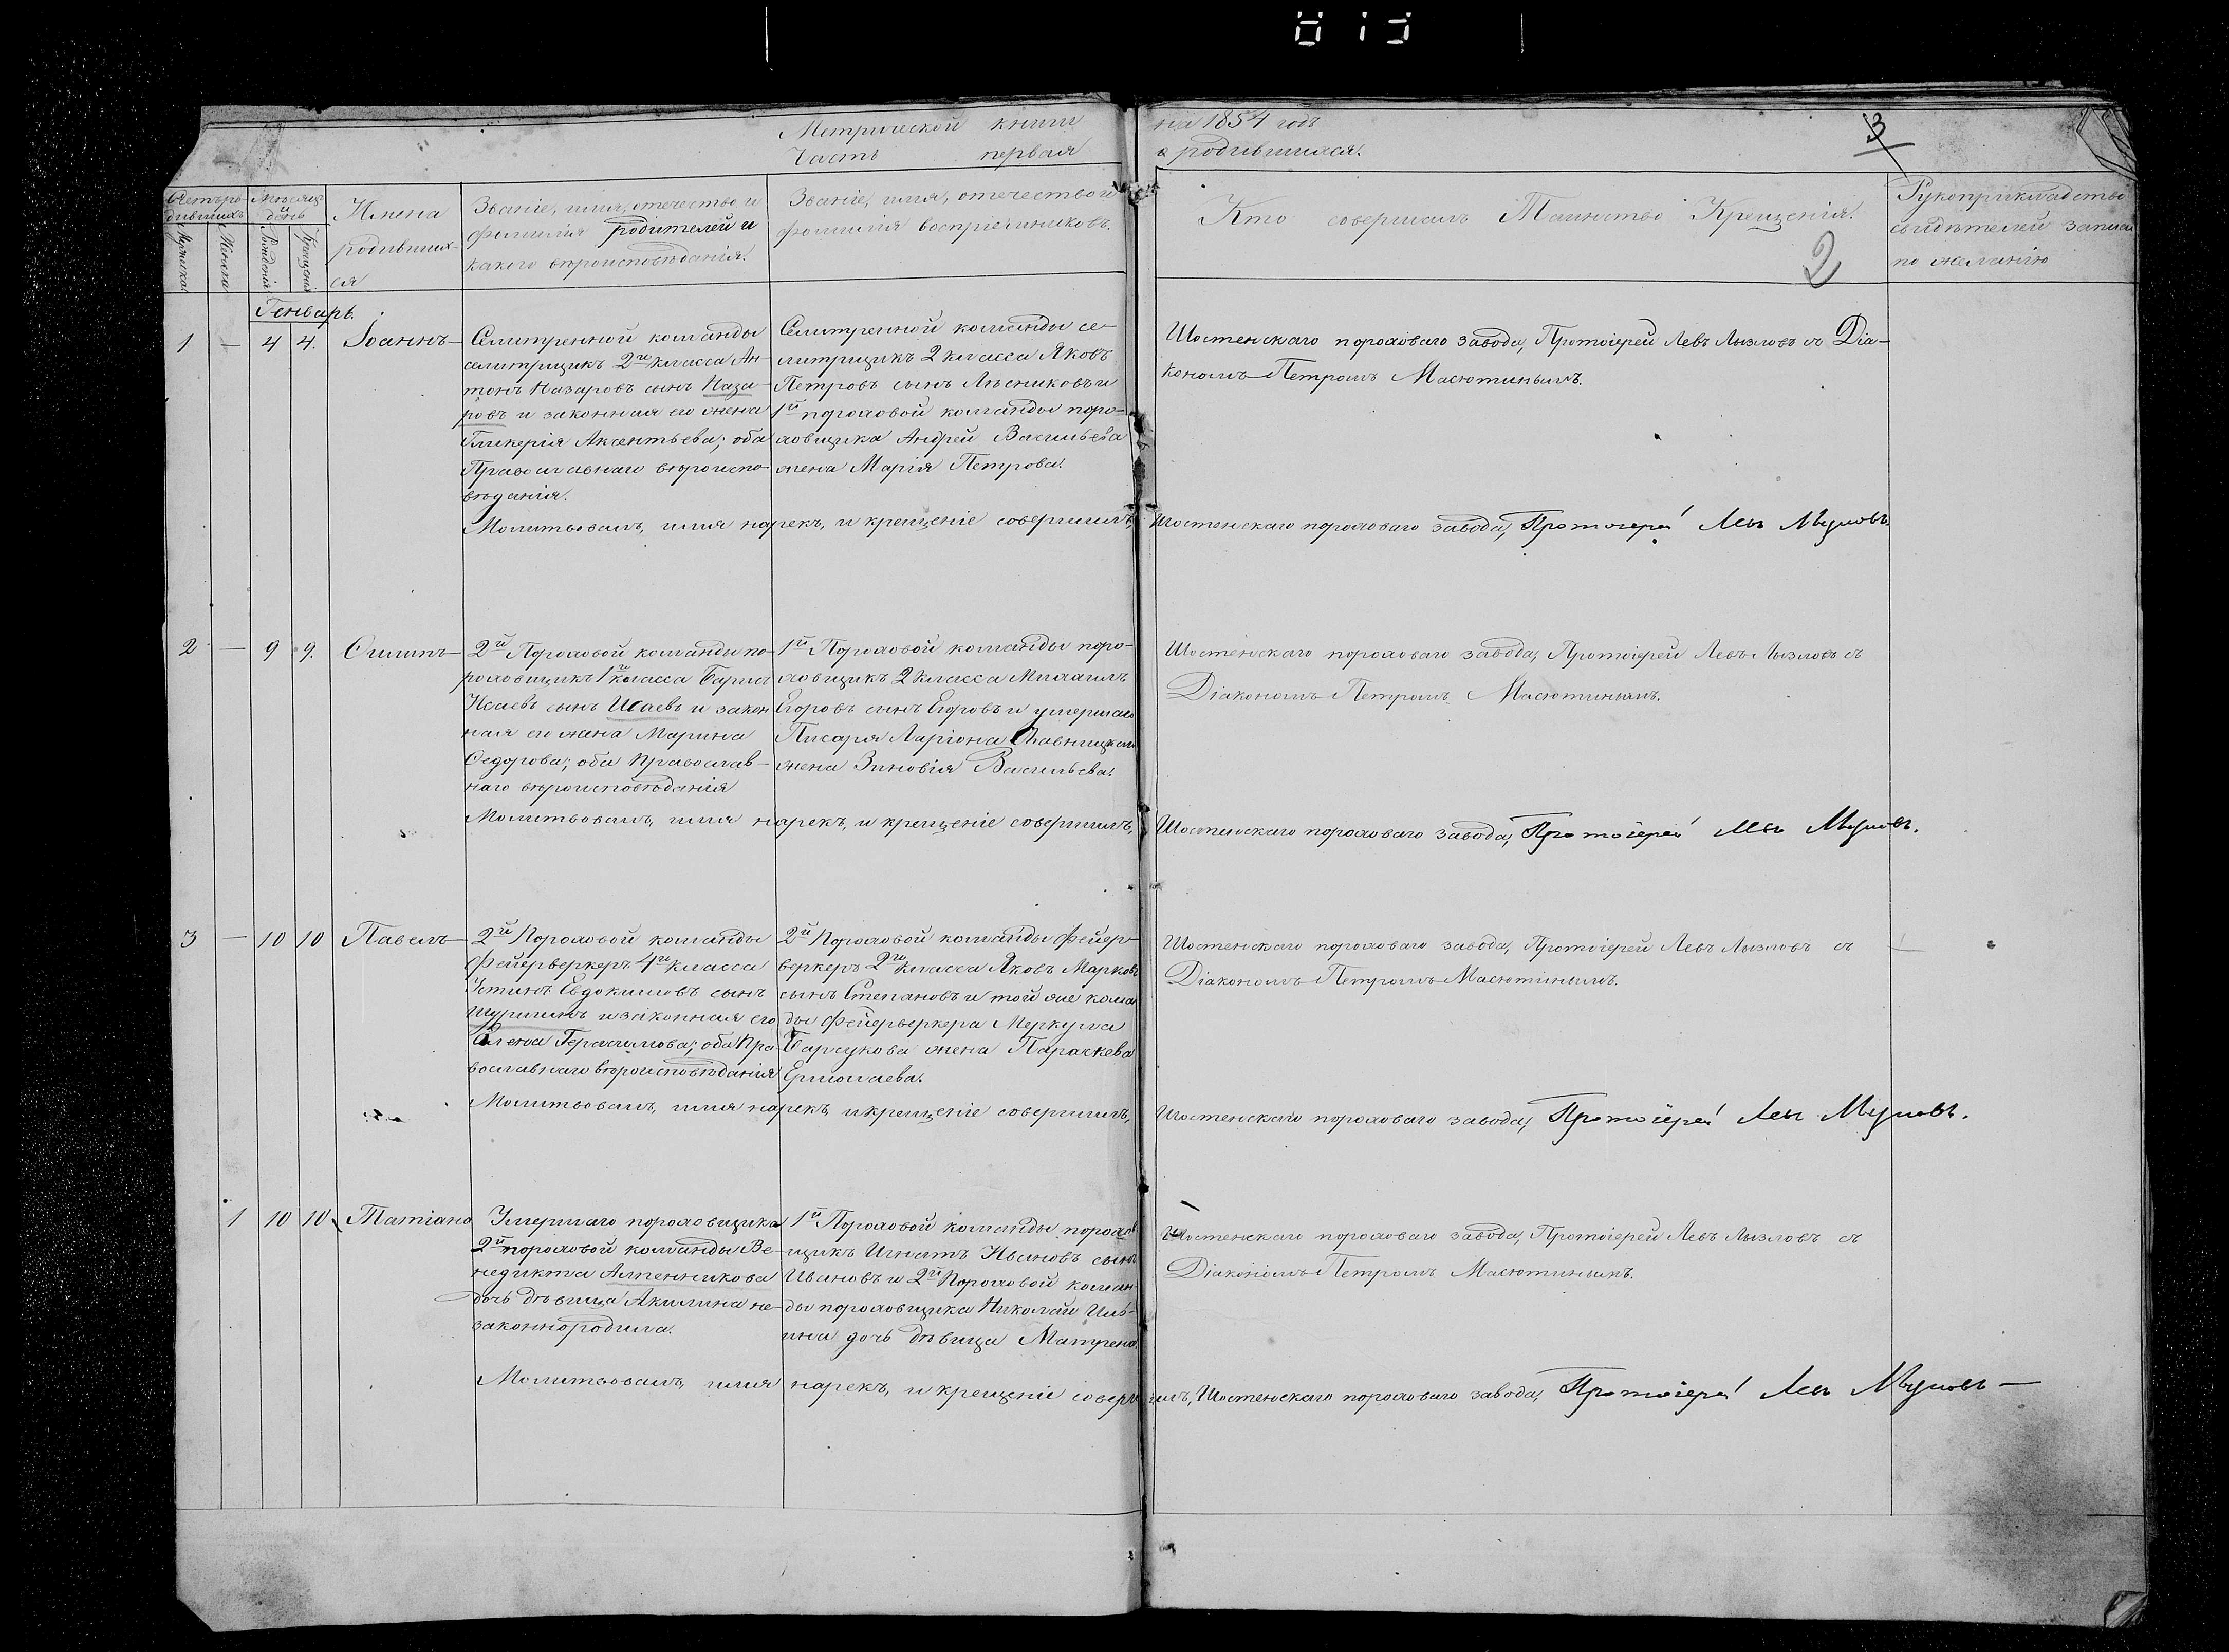 Метрической книги на 1854 годъ
Часть первая о родившихся.
13
2
Счетъ ро-
дившихъ
Мужеска
Женска
Мѣсяцъ
и
день
Рожденія
Крещенія
Имена
родивших-
ся
Званіе, имя, отечество и
фамилія родителей и
какого вѣроисповѣданія.
Званіе, имя, отечество и
фамилія воспріемниковъ.
Кто совершалъ Таинство Крещенія.
Рукоприкладство
свидѣтелей записи
по желанію
Генварь.
1 — 4 4. Іоаннъ —
Селитренной команды
селитрщикъ 2го класса Ан-
тонъ Назаровъ сынъ Наза-
ровъ и законная его жена
Гликерія Аксентьева; оба
Православнаго вѣроиспо-
вѣданія.
Селитренной команды се-
литрщикъ 2 класса Яковъ
Петровъ сынъ Лѣсниковъ и
1й пороховой команды поро-
ховщика Андрей Васильева
жена Марія Петрова.
Шостенскаго пороховаго завода, Протоіерей Левъ Лызловъ съ Діа-
кономъ Петромъ Масютинымъ.
Молитвовалъ, имя нарекъ, и крещеніе совершилъ, Шостенскаго пороховаго завода, Протоіерей Левъ Лызловъ
2 — 9 9. Филипъ —
2й Пороховой команды по-
роховщикъ 1го класса Борисъ
Исаевъ сынъ Исаевъ и закон
ная его жена Марина
Федорова; оба православ-
наго вѣроисповѣданія
1й Пороховой команды поро-
ховщикъ 2 класса Михаилъ
Егоровъ сынъ Егоровъ и умершаго
Писаря Ларіона
жена Зиновія Васильева.
Шостенскаго пороховаго завода, Протоіерей Левъ Лызловъ съ
Діакономъ Петромъ Масютинымъ.
Молитвовалъ, имя нарекъ, и крещеніе совершилъ, Шостенскаго пороховаго завода, Протоіерей Левъ Лызловъ.
3 — 10 10 Павелъ —
2й Пороховой команды
Фейерверкеръ 4го класса
Устинъ Евдокимовъ сынъ
Шуришинъ и законная его
Елена Герасимова; оба Пра-
вославнаго вѣроисповѣданія
2й Пороховой команды Фейер-
веркеръ 2го класса Яковъ Марковъ
сынъ Степановъ и той же коман
ды фейерверкера Меркула
Барсукова жена Параскева
Ермолаева.
Шостенскаго пороховаго завода, Протоіерей Левъ Лызловъ съ
Діакономъ Петромъ Масютинымъ.
Молитвовалъ, имя нарекъ, и крещеніе совершилъ, Шостенскаго пороховаго завода, Протоіерей Левъ Лызловъ.
1 10 10 Татіана
Умершаго пороховщика
2й пороховой команды Ве-
недикта Алтенникова
дочь дѣвица Акилина не-
законнородила.
1й Пороховой команды порохов
щикъ Игнатъ Ивановъ сынъ
Ивановъ и 2й Пороховой коман-
ды пороховщика Николай Иль-
ина дочь дѣвица Матрена.
Шостенскаго пороховаго завода, Протоіерей Левъ Лызловъ съ
Діакономъ Петромъ Масютинымъ.
Молитвовалъ, имя нарекъ, и крещеніе совершилъ, Шостенскаго пороховаго завода, Протоіерей Левъ Лызловъ —